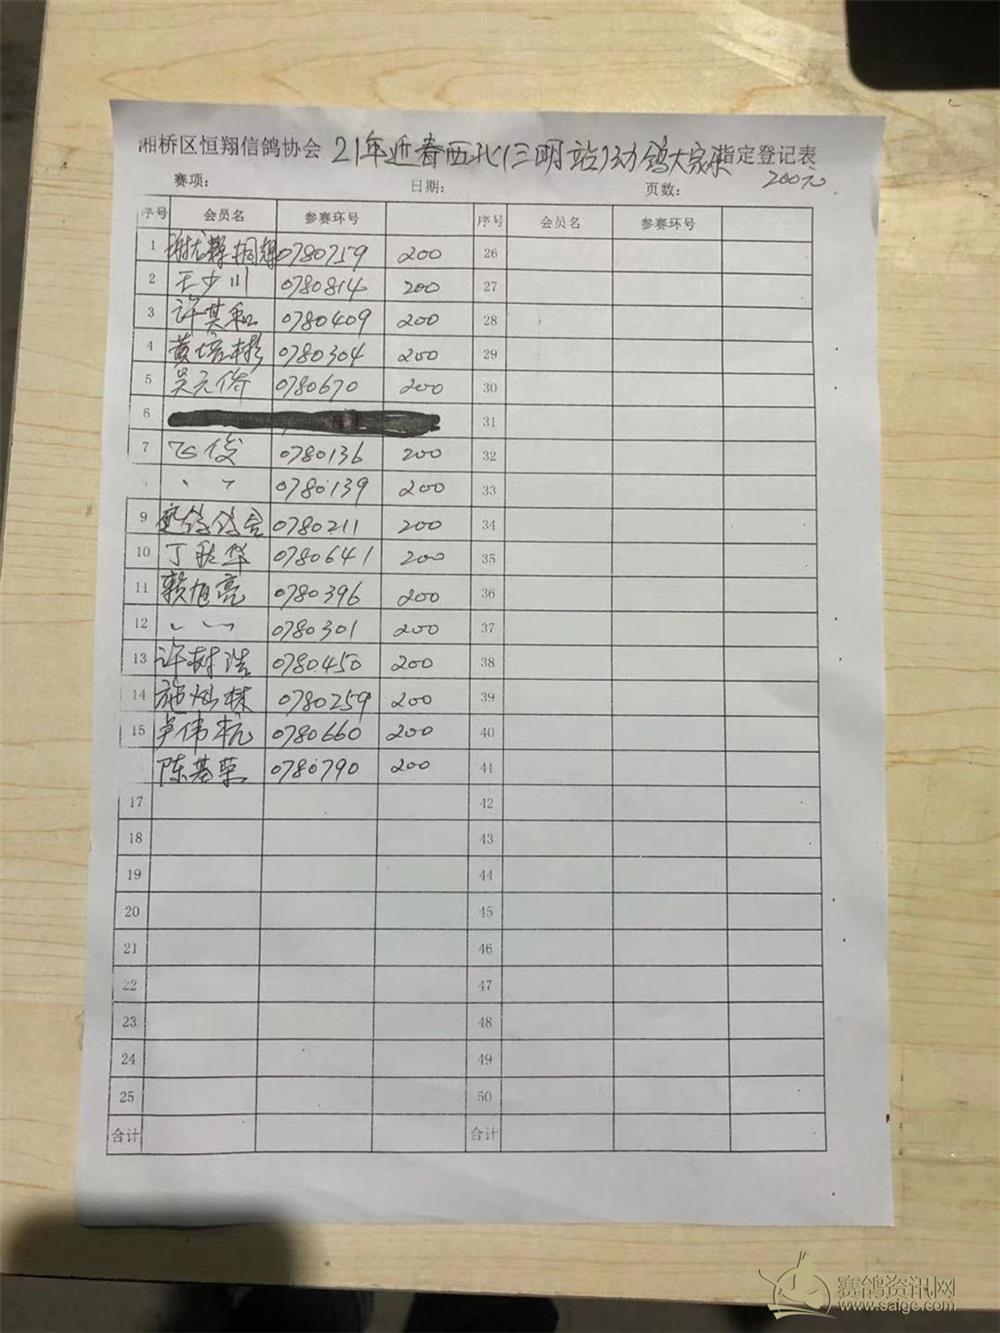 湘桥区恒翔信鸽协会 21年迎春西北(三明站)幼鸽大家乐指定登记表
200元
赛项： 日期： 页数：
序号 会员名 参赛环号 序号 会员名 参赛环号
1 0780759 200 26
2 王少川 0780814 200 27
3 许英和 0780409 200 28
4 黄培彬 0780304 200 29
5 吴元侨 0780670 200 30
6 31
7 飞俊 0780136 200 32
〃 0780139 200 33
9 鸽舍 0780211 200 34
10 丁秋华 0780641 200 35
11 赖旭亮 0780396 200 36
12 〃 0780301 200 37
13 许树浩 0780450 200 38
14 施灿林 0780259 200 39
15 卢伟杭 0780660 200 40
陈基荣 0780790 200 41
17 42
18 43
19 44
20 45
21 46
22 47
23 48
24 49
25 50
合计 合计
赛鸽资讯网
www.saige.com